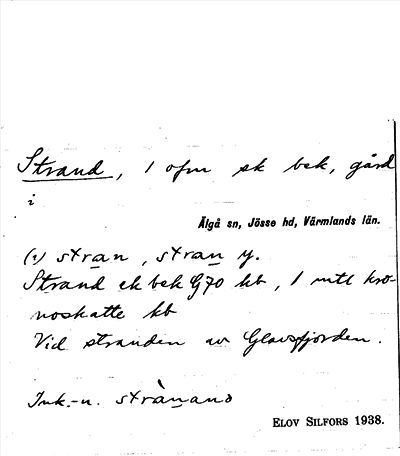 Strand, 1 ofm sk bek, gård
i
Älgå sn, Jösse hd, Värmlands län.
(1) stran, stran y.
Strand ek bek G70 kb, 1 mtl kro-
noskatte kb
Vid stranden av Glavsfjorden.
Ink.-n. strànano
ELOV SILFORS 1938.